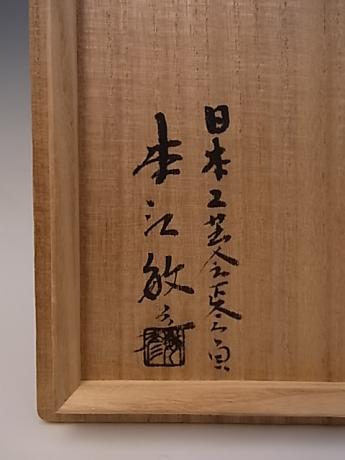 日本工芸会正会員
江敏